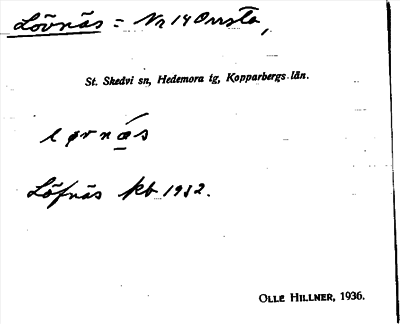 Lövnäs = Nr 14 Onsta,
St. Skedvi sn, Hedemora tg, Kopparbergs län.
lørnås
Löfnäs kb 1932.
OLLE HILLNER, 1936.